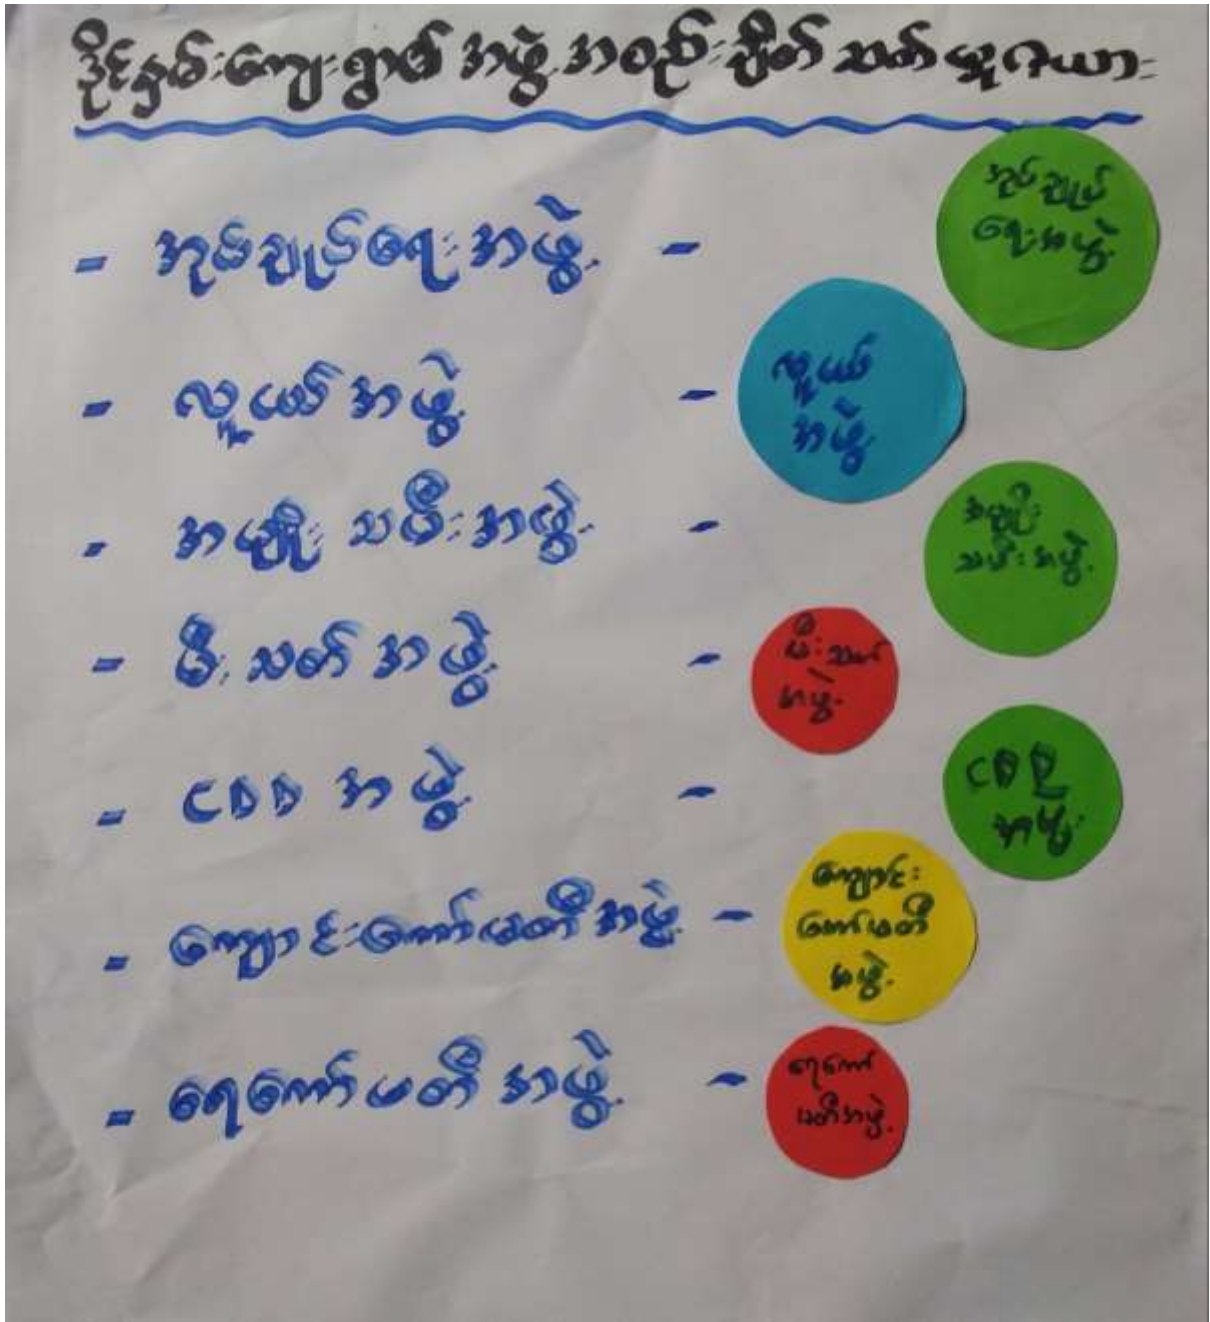 ဒိုင်နှမ်းကျေးရွာ၏ အဖွဲ့အစည်းချိတ်ဆက်မှုဇယား
- အုပ်ချုပ်ရေးအဖွဲ့ -
အုပ်ချုပ်
ရေးအဖွဲ့
- လူငယ်အဖွဲ့ -
လူငယ်
အဖွဲ့
- အမျိုးသမီးအဖွဲ့ -
အမျိုး
သမီးအဖွဲ့
- မီးသတ်အဖွဲ့ -
မီးသတ်
အဖွဲ့
- CDD အဖွဲ့ -
CDD
အဖွဲ့
- ကျောင်းကော်မတီအဖွဲ့ -
ကျောင်း
ကော်မတီ
အဖွဲ့
- ရေကော်မတီအဖွဲ့ -
ရေကော်
မတီအဖွဲ့